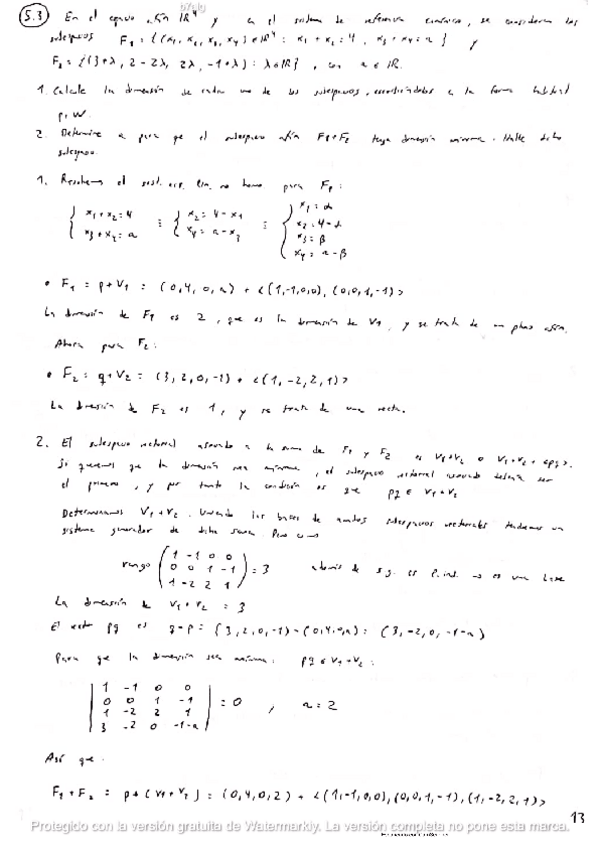 5.3 En el espacio afín IR⁴ y en el sistema de referencia canónico, se consideran los
subespacios F₁ = {(x₁, x₂, x₃, x₄) ∈ IR⁴ : x₁ + x₂ = 4, x₃ + x₄ = a} y
F₂ = {(3+λ, 2-2λ, 2λ, -1+λ) : λ ∈ IR}, con a ∈ IR.
1. Calcule la dimensión de cada uno de los subespacios, escribiéndolos en la forma habitual
p+W.
2. Determine a para que el subespacio afín F₁+F₂ tenga dimensión mínima. Halle dicho
subespacio.
1. Resolvemos el sist. ec. lin. no homo para F₁:
{ x₁+x₂=4 x₃+x₄=a ≡ { x₂=4-x₁ x₄=a-x₃ ≡ { x₁=α x₂=4-α x₃=β x₄=a-β
• F₁ = p+V₁ = (0,4,0,a) + <(1,-1,0,0), (0,0,1,-1)>
La dimensión de F₁ es 2, que es la dimensión de V₁, y se trata de un plano afín.
Ahora para F₂:
• F₂ = q+V₂ = (3,2,0,-1) + <(1,-2,2,1)>
La dimensión de F₂ es 1, y se trata de una recta.
2. El subespacio vectorial asociado a la suma de F₁ y F₂ es V₁+V₂ o V₁+V₂+<pq>.
Si queremos que la dimensión sea mínima, el subespacio vectorial asociado debería ser
el primero, y por tanto la condición es que pq ∈ V₁+V₂
Determinamos V₁+V₂. Uniendo las bases de ambos subespacios vectoriales tendremos un
sistema generador de dicha suma. Pero como
rango (1 -1 0 0
0 0 1 -1
1 -2 2 1) = 3 además de s.g. es l.ind. → es una base
La dimensión de V₁+V₂ = 3
El vect pq es q-p = (3,2,0,-1)-(0,4,0,a) = (3,-2,0,-1-a)
Para que la dimensión sea mínima: pq ∈ V₁+V₂:
| 1 -1 0 0 |
| 0 0 1 -1 |
| 1 -2 2 1 | = 0, a=2
| 3 -2 0 -1-a |
Así que:
F₁+F₂ = p+(V₁+V₂) = (0,4,0,2) + <(1,-1,0,0), (0,0,1,-1), (1,-2,2,1)>
13
Protegido con la versión gratuita de Watermarkly. La versión completa no pone esta marca.